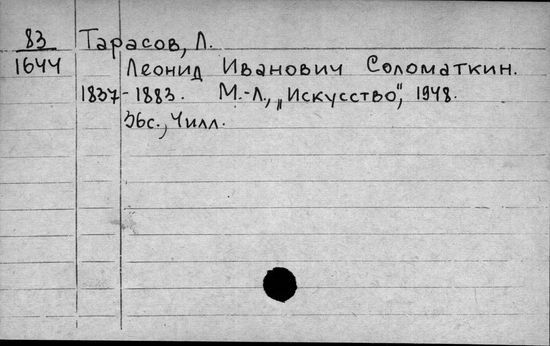 83 Тарасов, Л.
1644 Леонид Иванович Соломаткин.
1837-1883. М.-Л., „Искусство", 1948.
36с., 4илл.